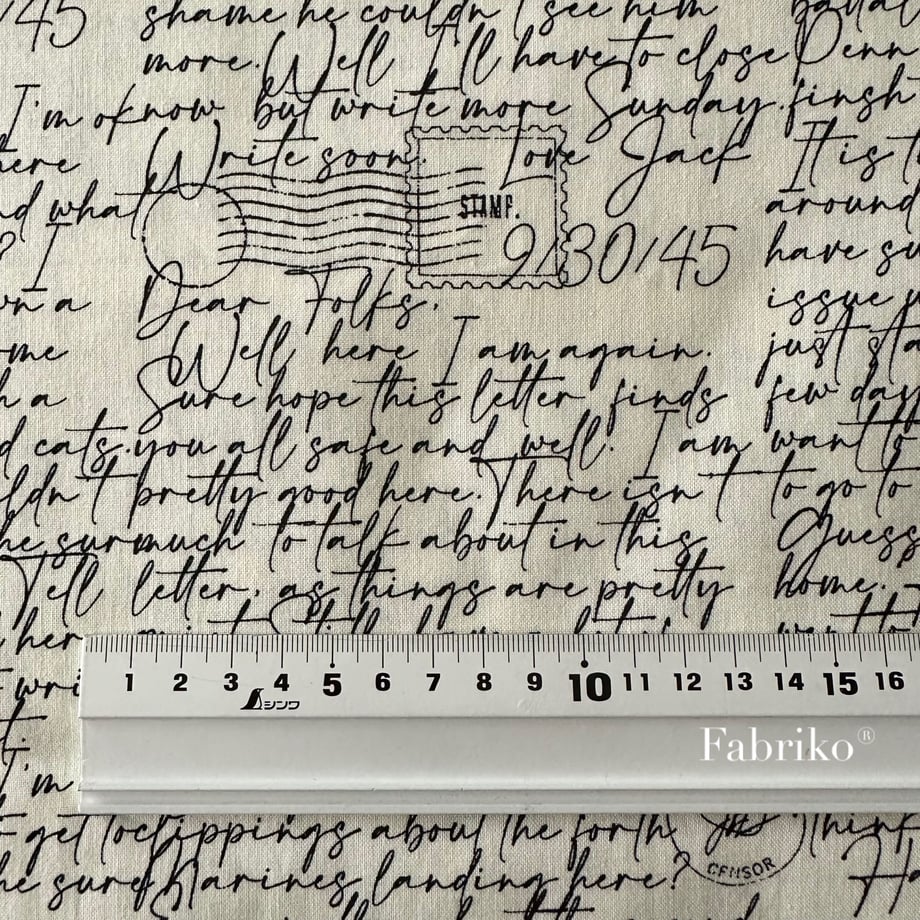 /45
I'm oknow
here
nd what
? I
wn a
me
h a
d cats.
ldn't
he sur
Tell
her
wri
t.
I'm
get to
he sure
shame he couldn't see him
more. Well I'll have to close
but write more Sunday.
Write soon. Love Jack
STAMP.
9/30/45
Dear Folks.
Well here I am again.
Sure hope this letter finds
you all safe and well. I am
pretty good here. There isn't
much to talk about in this
letter, as things are pretty
1 2 3 4 5 6 7 8 9 10 11 12 13 14 15 16
シンワ
Fabriko®
clippings about the forth
Marines landing here?
CENSOR
Penn
finsh
It is t
around
have su
issue
just sta
few day
want to
to go to
Guess
home.
want to
Think
Ha